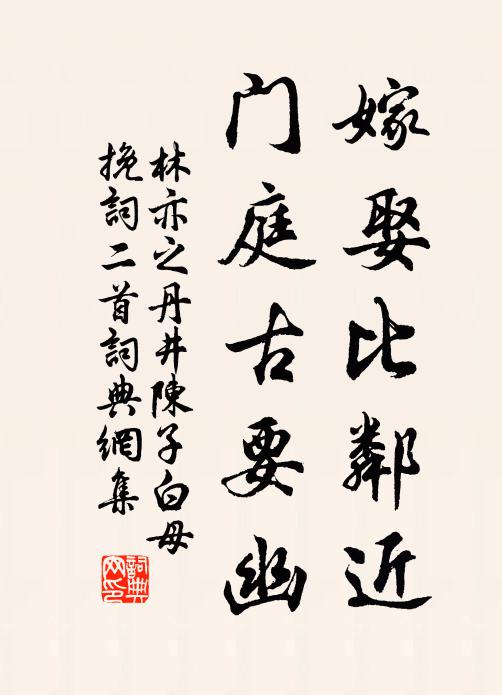 嫁娶比鄰近
门庭古要幽
林亦之丹井陳子白母
挽詞二首詞典網集
詞典
网印